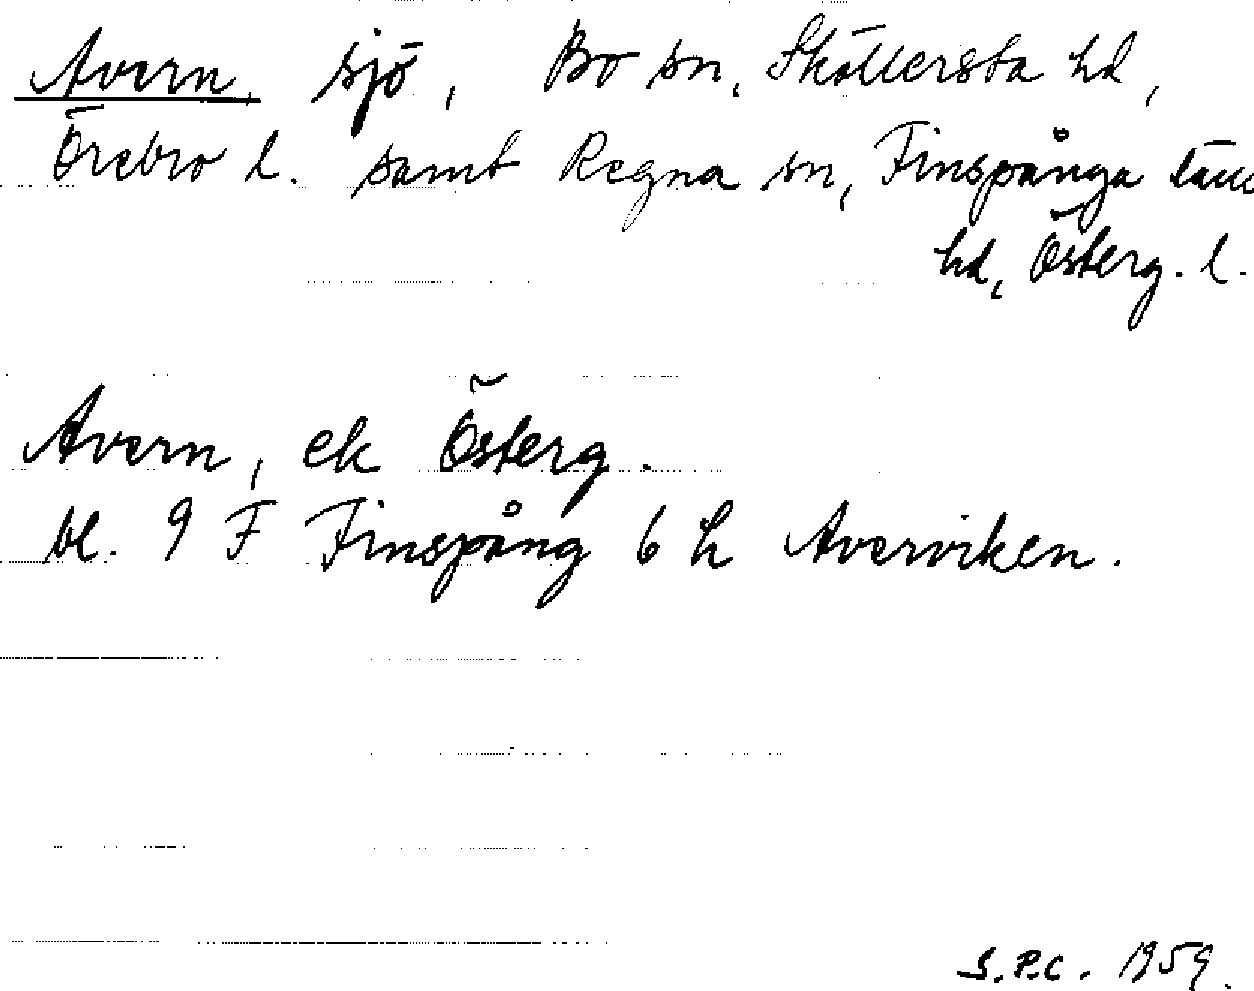 Avern, sjö, Bo sn, Sköllersta hd,
Örebro l. samt Regna sn, Finspånga läns
hd, Österg. l.
Avern, ek Österg.
bl. 9 F Finspång 6 h Averviken.
S.P.C. 1959.